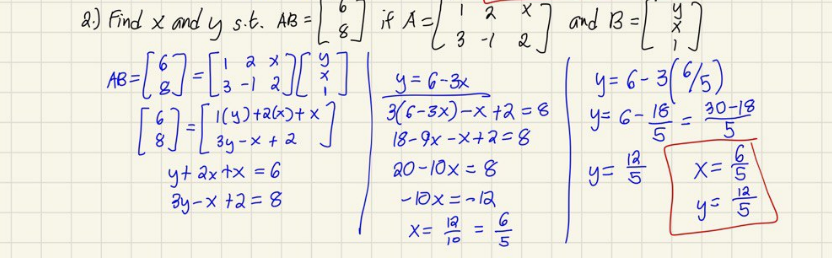 2.) Find x and y s.t. AB = [6 8] if A = [1 2 x 3 -1 2] and B = [y x 1]
AB = [6 8] = [1 2 x 3 -1 2][y x 1]
[6 8] = [1(y)+2(x)+x 3y-x+2]
y+2x+x = 6
3y-x+2 = 8
y = 6-3x
3(6-3x)-x+2 = 8
18-9x-x+2 = 8
20-10x = 8
-10x = -12
x = 12/10 = 6/5
y = 6-3(6/5)
y = 6-18/5 = 30-18/5
y = 12/5
x = 6/5
y = 12/5